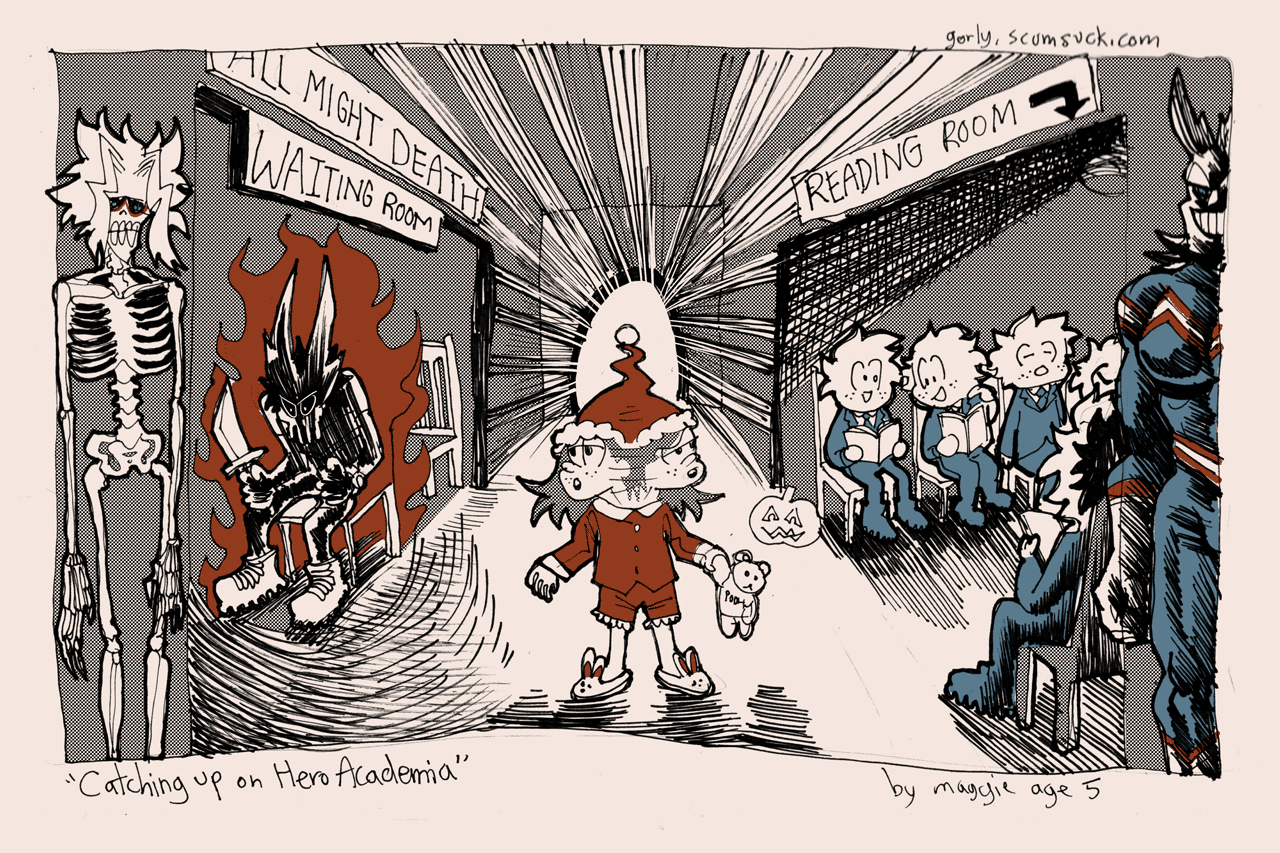 gorly. scumsuck.com
ALL MIGHT DEATH
WAITING ROOM
READING ROOM
POOL
"Catching up on Hero Academia"
by maggie age 5